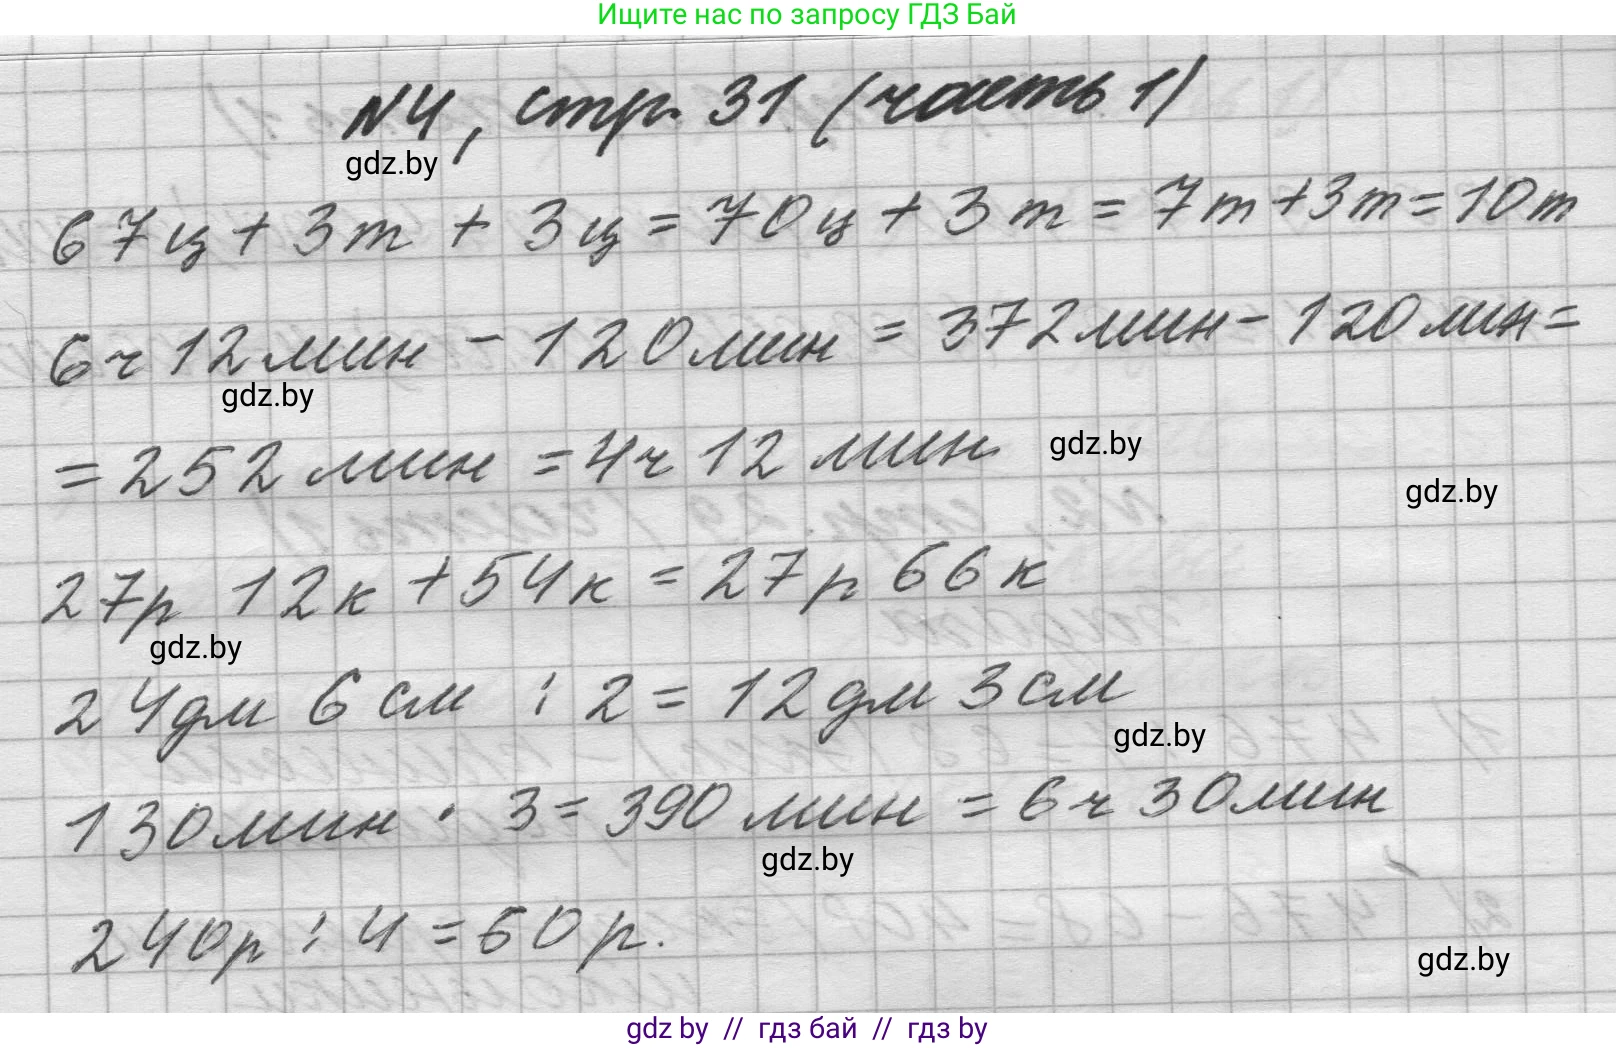 Ищите нас по запросу ГДЗ Бай
№4, стр. 31 (часть 1)
gdz.by
67ц + 3т + 3ц = 70ц + 3т = 7т + 3т = 10т
6ч 12мин - 120мин = 372мин - 120мин =
gdz.by
= 252 мин = 4ч 12 мин.
gdz.by
gdz.by
27р 12к + 54к = 27р 66к
gdz.by
24дм 6см : 2 = 12дм 3см
gdz.by
130мин · 3 = 390 мин = 6ч 30мин
gdz.by
240р : 4 = 60р.
gdz.by
gdz by // гдз бай // гдз by